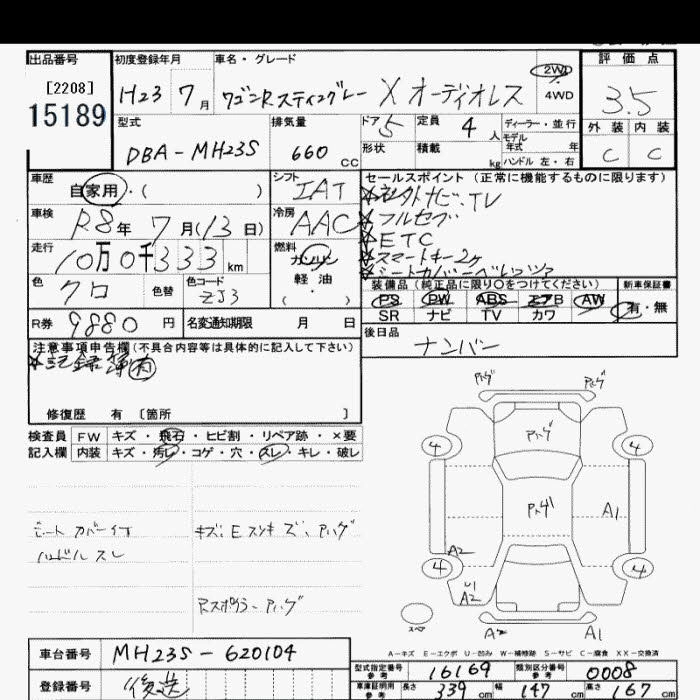 出品番号 初度登録年月 車名・グレード 評価点
[2208]
15189
H23 7月 ワゴンRスティングレー X オーディオレス 2WD 4WD 3.5
型式 排気量 ドア 5 定員 4人 ディーラー・並行 外装 内装
DBA-MH23S 660cc 形状 積載 kg モデル年式 年 ハンドル 左・右 C C
車歴 自家用・( ) シフト IAT セールスポイント(正常に機能するものに限ります)
ナビ、TV
車検 R8年 7月(13日) 冷房 AAC ☆フルセグ
☆ETC
走行 10万0千333km 燃料 ガソリン 軽油・( ) ☆スマートキー2ヶ
☆シートカバーベレッツァ
色 クロ 色替 色コード ZJ3 装備品(純正品に限り○をつけてください) 新車保証書
PS PW ABS エアB AW 有・無
SR ナビ TV カワ
R券 9880円 名変通知期限 月 日 後日品
ナンバー
注意事項申告欄(不具合内容等は具体的に記入して下さい)
☆記録簿有
修復歴 有 〔箇所 〕
検査員 FW キズ・飛石・ヒビ割・リペア跡・×要
記入欄 内装 キズ・汚レ・コゲ・穴・スレ・キレ・破レ
シートカバー付 キズ、Eスリキズ、アハゲ
ハンドルスレ
Rスポイラーアハゲ
アハゲ アハゲ
アハゲ
4 4
アハゲ A1
A2
4 4
U1
A2
スペア
A2 A1
A-キズ E-エクボ U-凹み W-補修跡 S-サビ C-腐食 XX-交換済
車台番号 MH23S-620104
型式指定番号 参考 16169 類別区分番号 参考 0008
登録番号 後送
車庫証明用 参考 長さ 339cm 幅 147cm 高さ 167cm